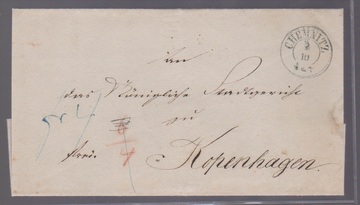 CHEMNITZ
10
An
das Königliche Stadtgericht
zu
Kopenhagen.
frei.